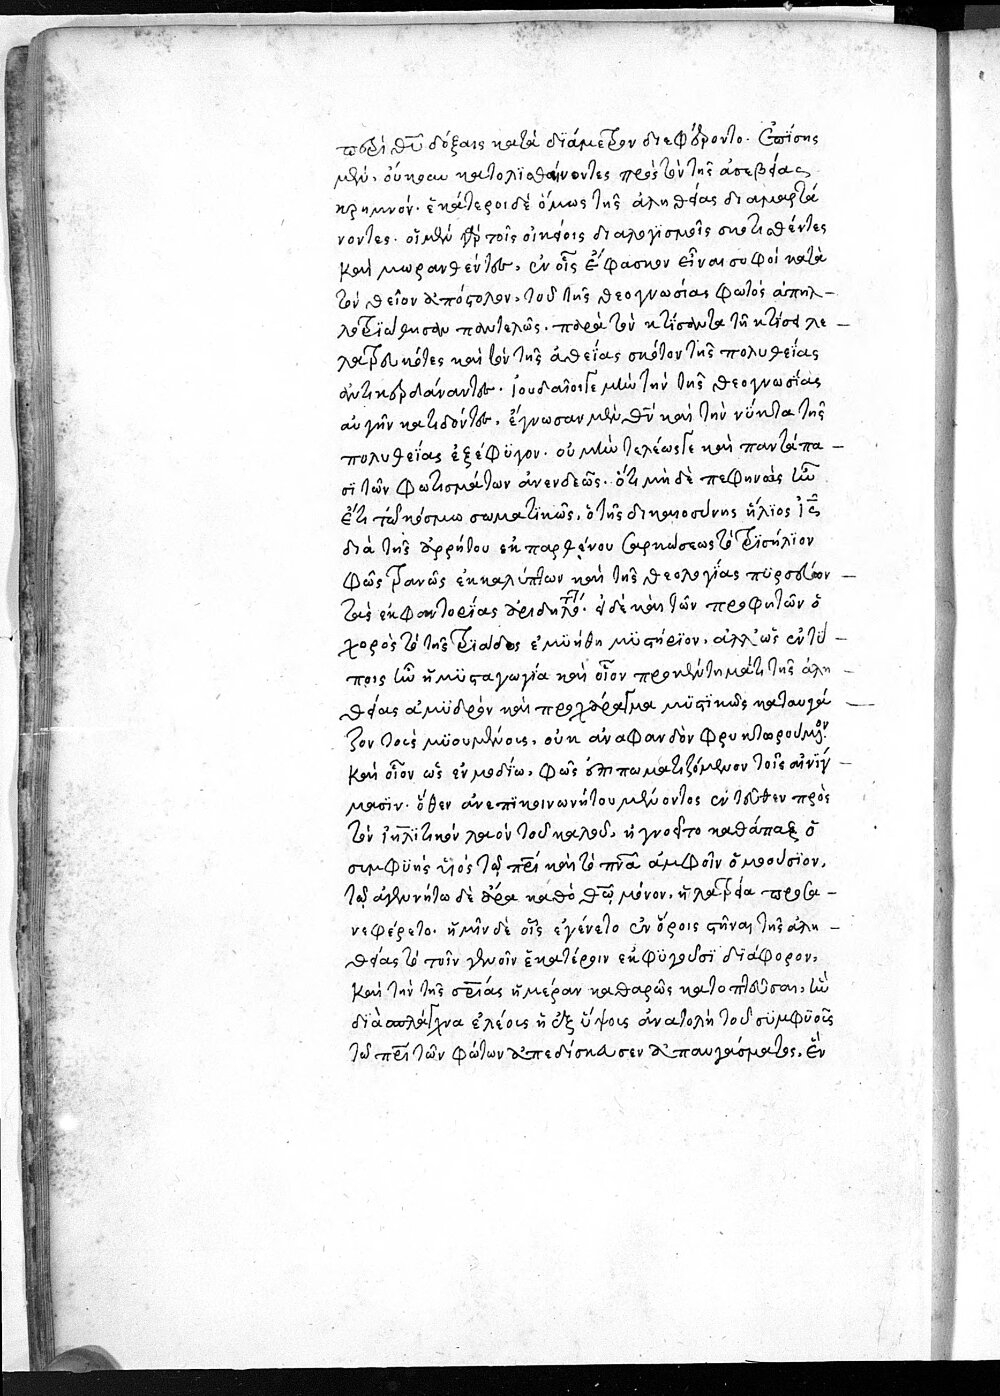 περὶ θῦ δόξαις κατὰ διάμετρον διεφέροντο. ἐπίσης
μὲν, οὐκ κατολισθαίνοντες πρὸς τὸν τῆς ἀσεβείας
κρημνόν. ἑκάτεροι δὲ ὅμως τῆς ἀληθείας διαμαρτά
νοντες. οἱ μὲν γὰρ τοῖς οἰκείοις διαλογισμοῖς σκοτισθέντες
καὶ μωρανθέντες, ἐν οἷς ἔφασκον εἶναι σοφοὶ κατὰ
τὸν θεῖον ἀπόστολον, τοῦ τῆς θεογνωσίας φωτὸς ἀπηλ-
λοτρίωθησαν παντελῶς. παρὰ τὸν κτίσαντα τῆ κτίσει λε-
λατρευκότες καὶ τὸν τῆς ἀθεΐας σκότον τῆς πολυθεΐας
ἀντικερδάναντες. ἰουδαῖοί γε μὴν τὴν τῆς θεογνωσίας
αὐγὴν κατιδόντες, ἔγνωσαν μὲν θν καὶ τὴν νύκτα τῆς
πολυθεΐας ἐξέφυγον. οὐ μὴν τελέως γε καὶ παντάπα-
σι τῶν φωτισμάτων ἀνενδεῶς. ὅτι μὴ δὲ πεφηνὼς ἦν
ἔτι τῶ κόσμω σωματικῶς, ὁ τῆς δικαιοσύνης ἥλιος ις
διὰ τῆς ἀρρήτου ἐκ παρθένου σαρκώσεως τὸ τρισήλιον
φῶς τρανῶς ἐκκαλύπτων καὶ τῆς θεολογίας πυρσεύων-
τὰς ἐκφαντορίας ἀριδηλό. εἰ δὲ καὶ τῶν προφητῶν ὁ
χορὸς τὸ τῆς τριάδος ἐμυήθη μυστήριον, ἀλλ' ὡς ἐν τύ-
ποις ἦν ἡ μυσταγωγία καὶ οἷον προκεντήματι τῆς ἀλη-
θείας ἀμυδρὸν καὶ προχάραγμα μυστικῶς καταυγά-
ζον τοὺς μυουμένους, οὐκ ἀναφανδὸν φρυκτωρούμενον.
καὶ οἷον ὡς ἐν μοδίω, φῶς ἐπιπωματιζόμενον τοῖς αἰνίγ-
μασιν. ὅθεν ἀνεπικοινωνήτου μένοντος ἐντεῦθεν πρὸς
τὸν ιηλιτικὸν λαὸν τοῦ καλοῦ, ἠγνοεῖτο καθάπαξ ὁ
συμφυὴς υἱὸς τῷ πρὶ καὶ τὸ πνα ἀμφοῖν ὁμοούσιον,
τῷ ἀγεννήτω δὲ ἄρα καθὸ θῶ μόνον, ἡ λατρεία προσα-
νεφέρετο. ἡμῖν δὲ οἷς ἐγένετο ἐν ὅροις στῆναι τῆς ἀλη-
θείας τὸ τοῖν γενοῖν ἑκατέροιν ἐκφυγοῦσι διάφορον,
καὶ τὴν τῆς σριας ἡμέραν καθαρῶς κατοπτεῦσαι, ἣν
διὰ σπλάγχνα ἐλέους ἡ ἐξ ὕψους ἀνατολὴ τοῦ συμφυοῦς
τῶ πρὶ τῶν φώτων ἀπεδίσκευσεν ἀπαυγάσματος, ἓν